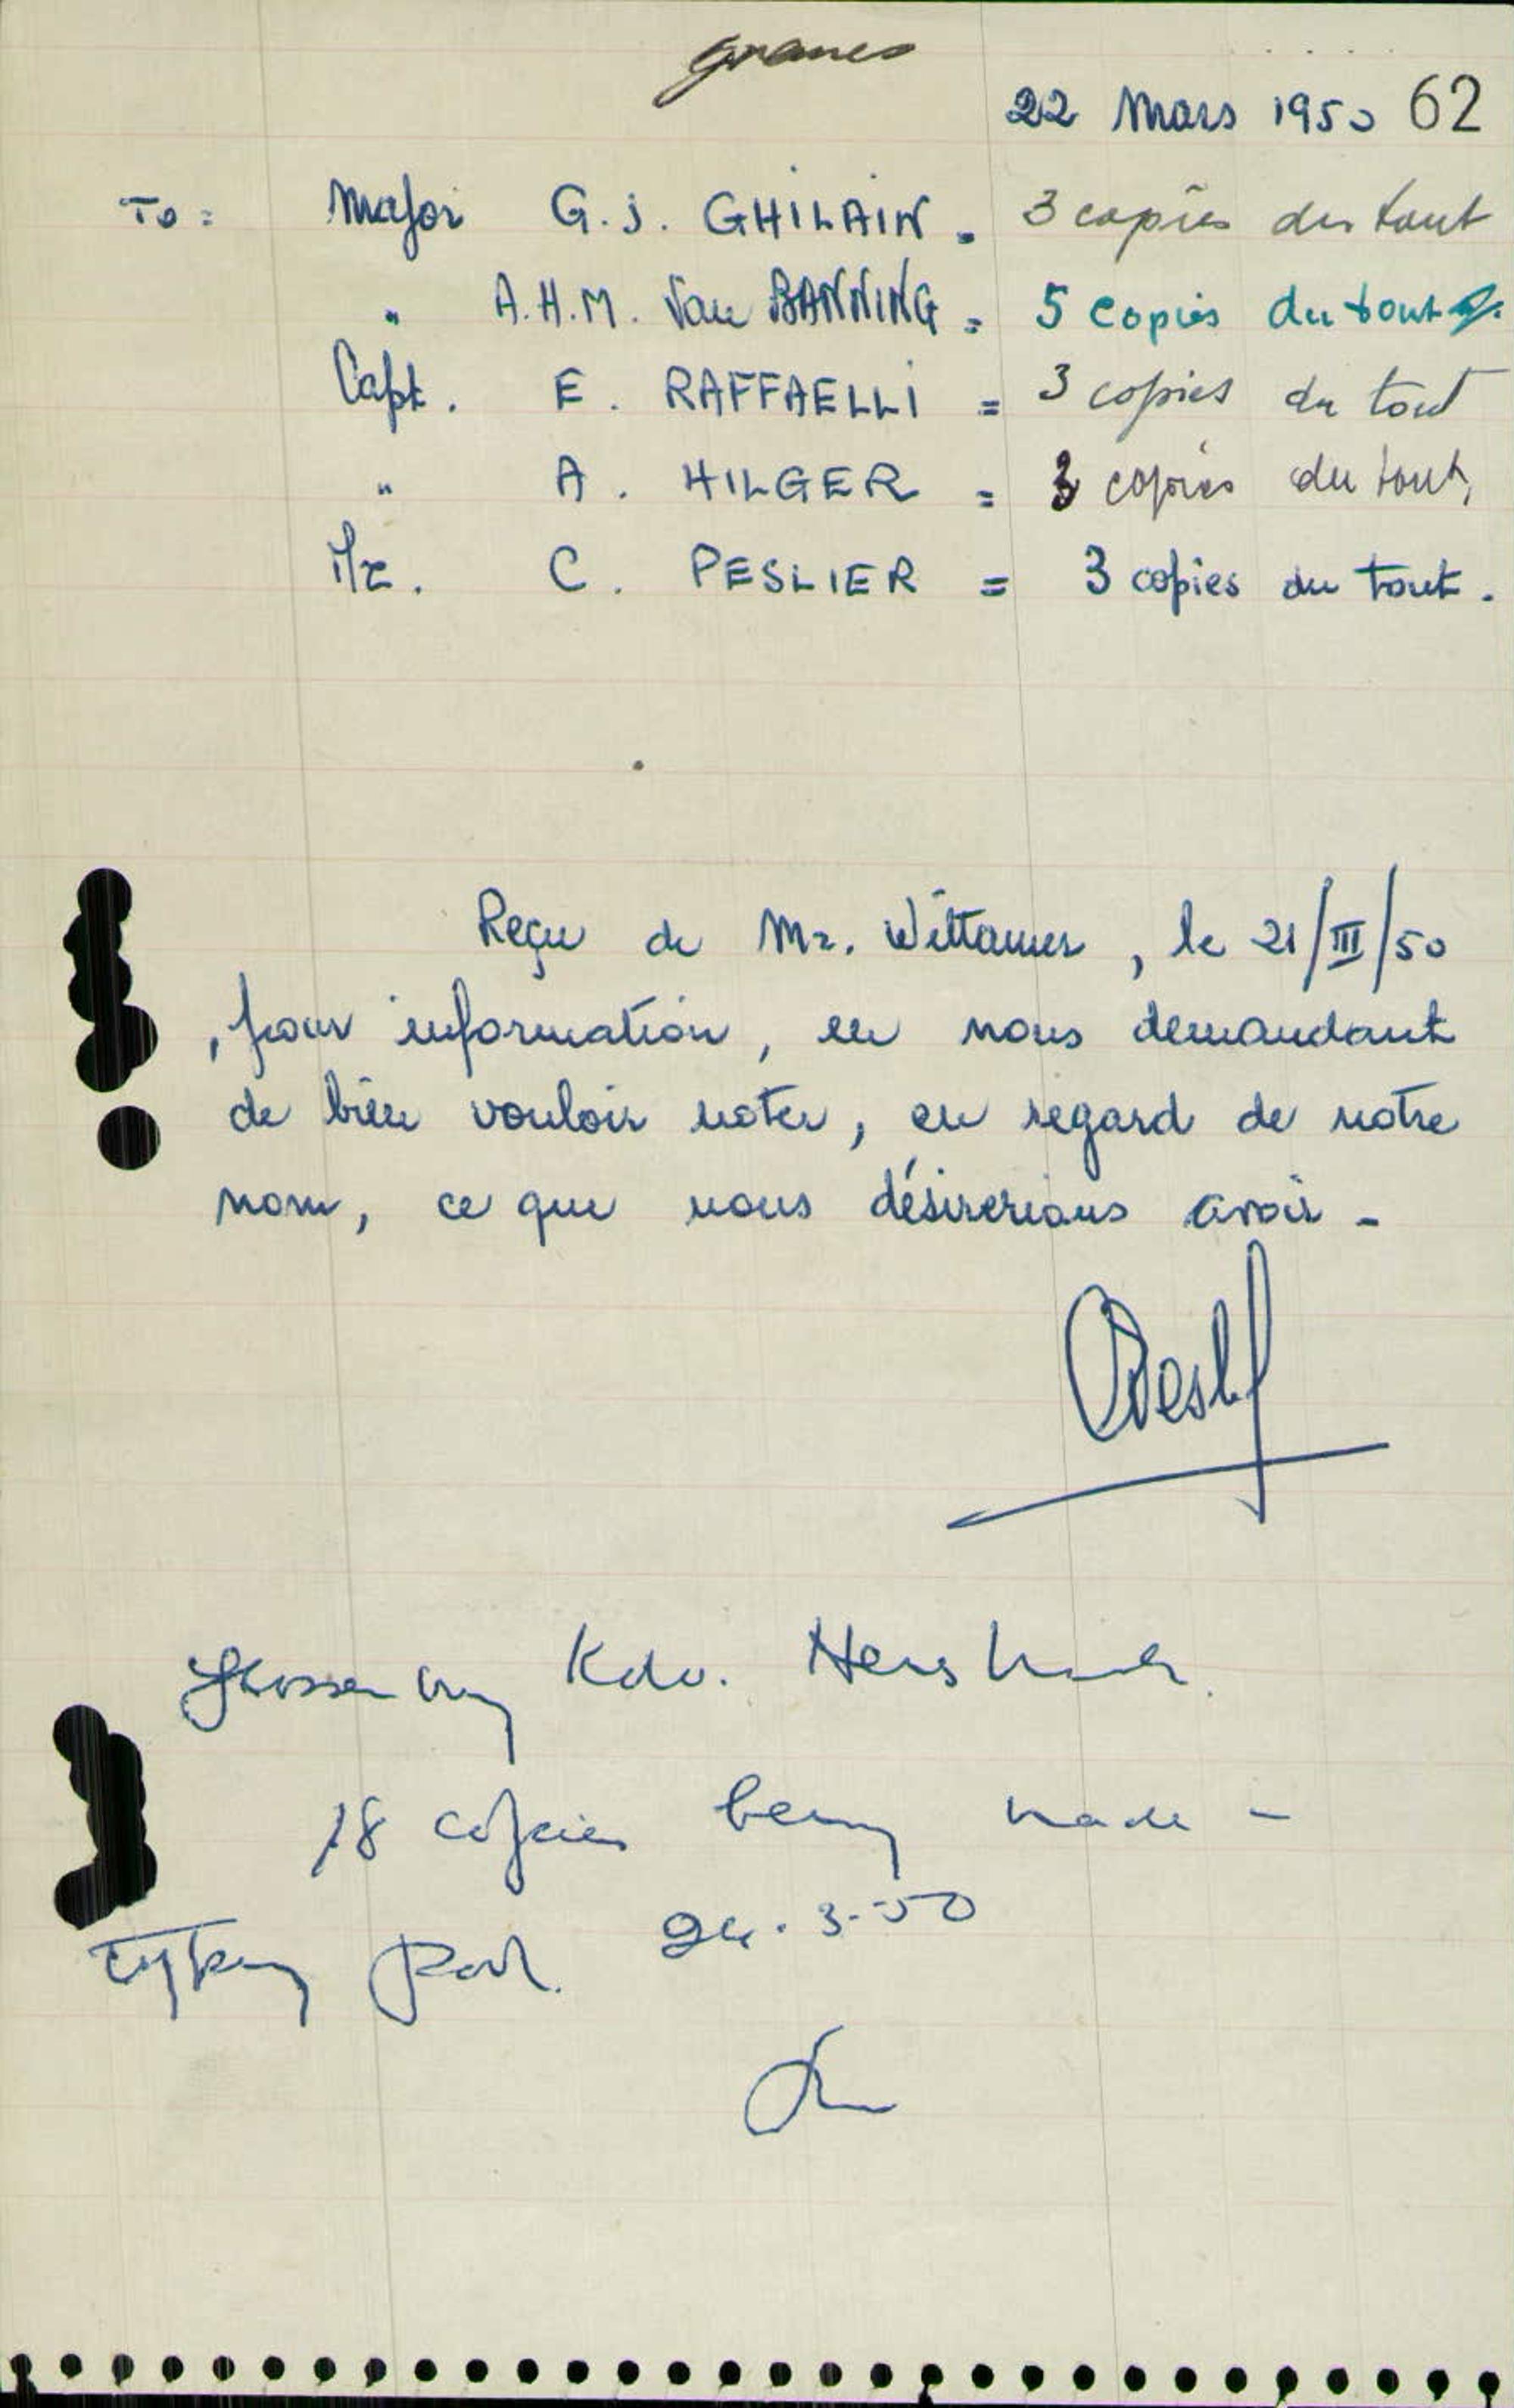 graves
22 Mars 1950 62
To : Major G.J. GHILAIN - 3 copies du tout
" A.H.M. Van BANNING = 5 copies du tout
Capt. E. RAFFAELLI = 3 copies du tout
" A. HILGER = 3 copies du tout,
C. PESLIER = 3 copies du tout.
Reçu de Mr. Wittamer, le 21/III/50
, pour information, en nous demandant
de bien vouloir noter, en regard de notre
nom, ce que nous désirerions avoir -
Kdo.
18 copies being made -
24.3.50